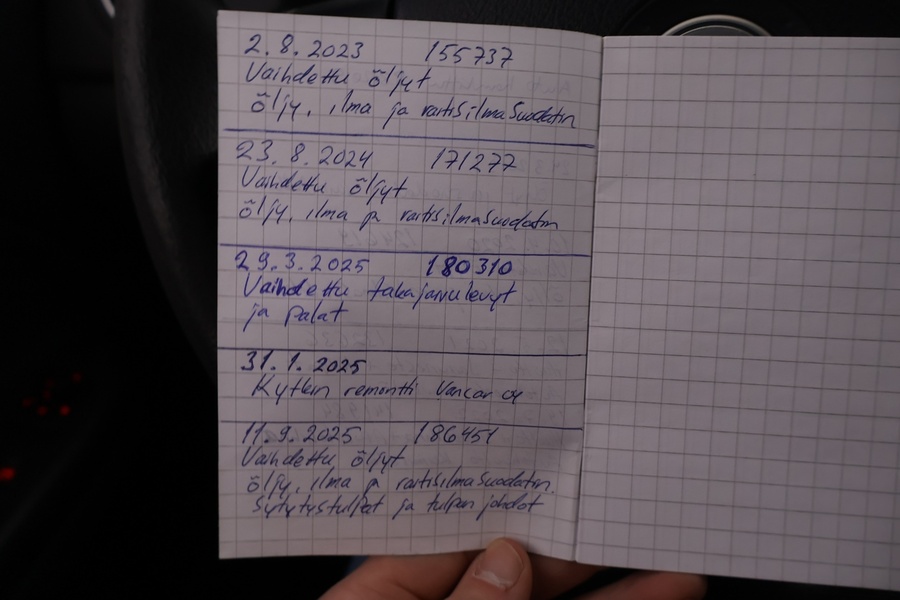 2.8.2023 155737
Vaihdettu öljyt
öljy, ilma ja raitisilmasuodatin
23.8.2024 171277
Vaihdettu öljyt
öljy, ilma ja raitisilmasuodatin
29.3.2025 180310
Vaihdettu takajarrulevyt
ja palat
31.1.2025
Kytkin remontti Vancar oy
11.9.2025 186451
Vaihdettu öljyt
öljy, ilma ja raitisilmasuodatin.
Sytytystulpat ja tulpan johdot